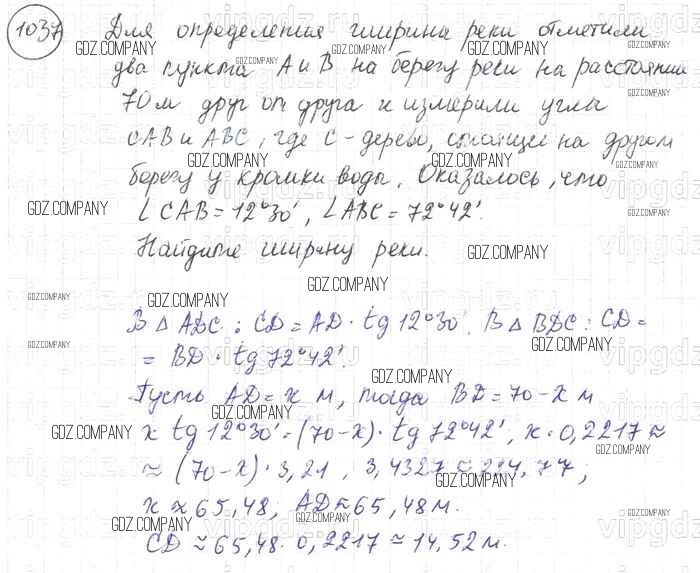 1037 Для определения ширины реки отметили
два пункта А и В на берегу реки на расстоянии
70 м друг от друга и измерили углы
САВ и АВС, где С - дерево, стоящее на другом
берегу у кромки воды. Оказалось, что
∠ САВ = 12°30', ∠АВС = 72°42'.
Найдите ширину реки.
В △ ADC : CD = AD · tg 12°30'. В △ BDC : CD =
= BD · tg 72°42'.
Пусть AD = x м, тогда BD = 70 - x м
x tg 12°30' = (70 - x) · tg 72°42', x · 0,2217 ≈
≈ (70 - x) · 3,21, 3,4327 ≈ 224,77;
x ≈ 65,48, AD ≈ 65,48 м.
CD ≈ 65,48 · 0,2217 ≈ 14,52 м.
GDZ.COMPANY
vipgdz.ru